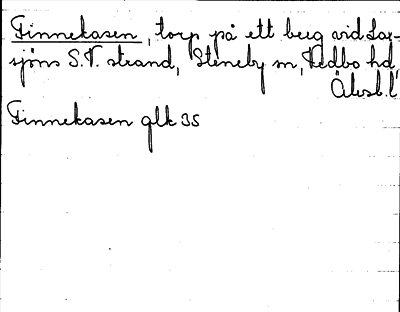 Finnekasen, torp på ett berg vid Lax-
sjöns S.V. strand, Steneby sn, Vedbo hd,
Älvsb. l.
Finnekasen glk 35